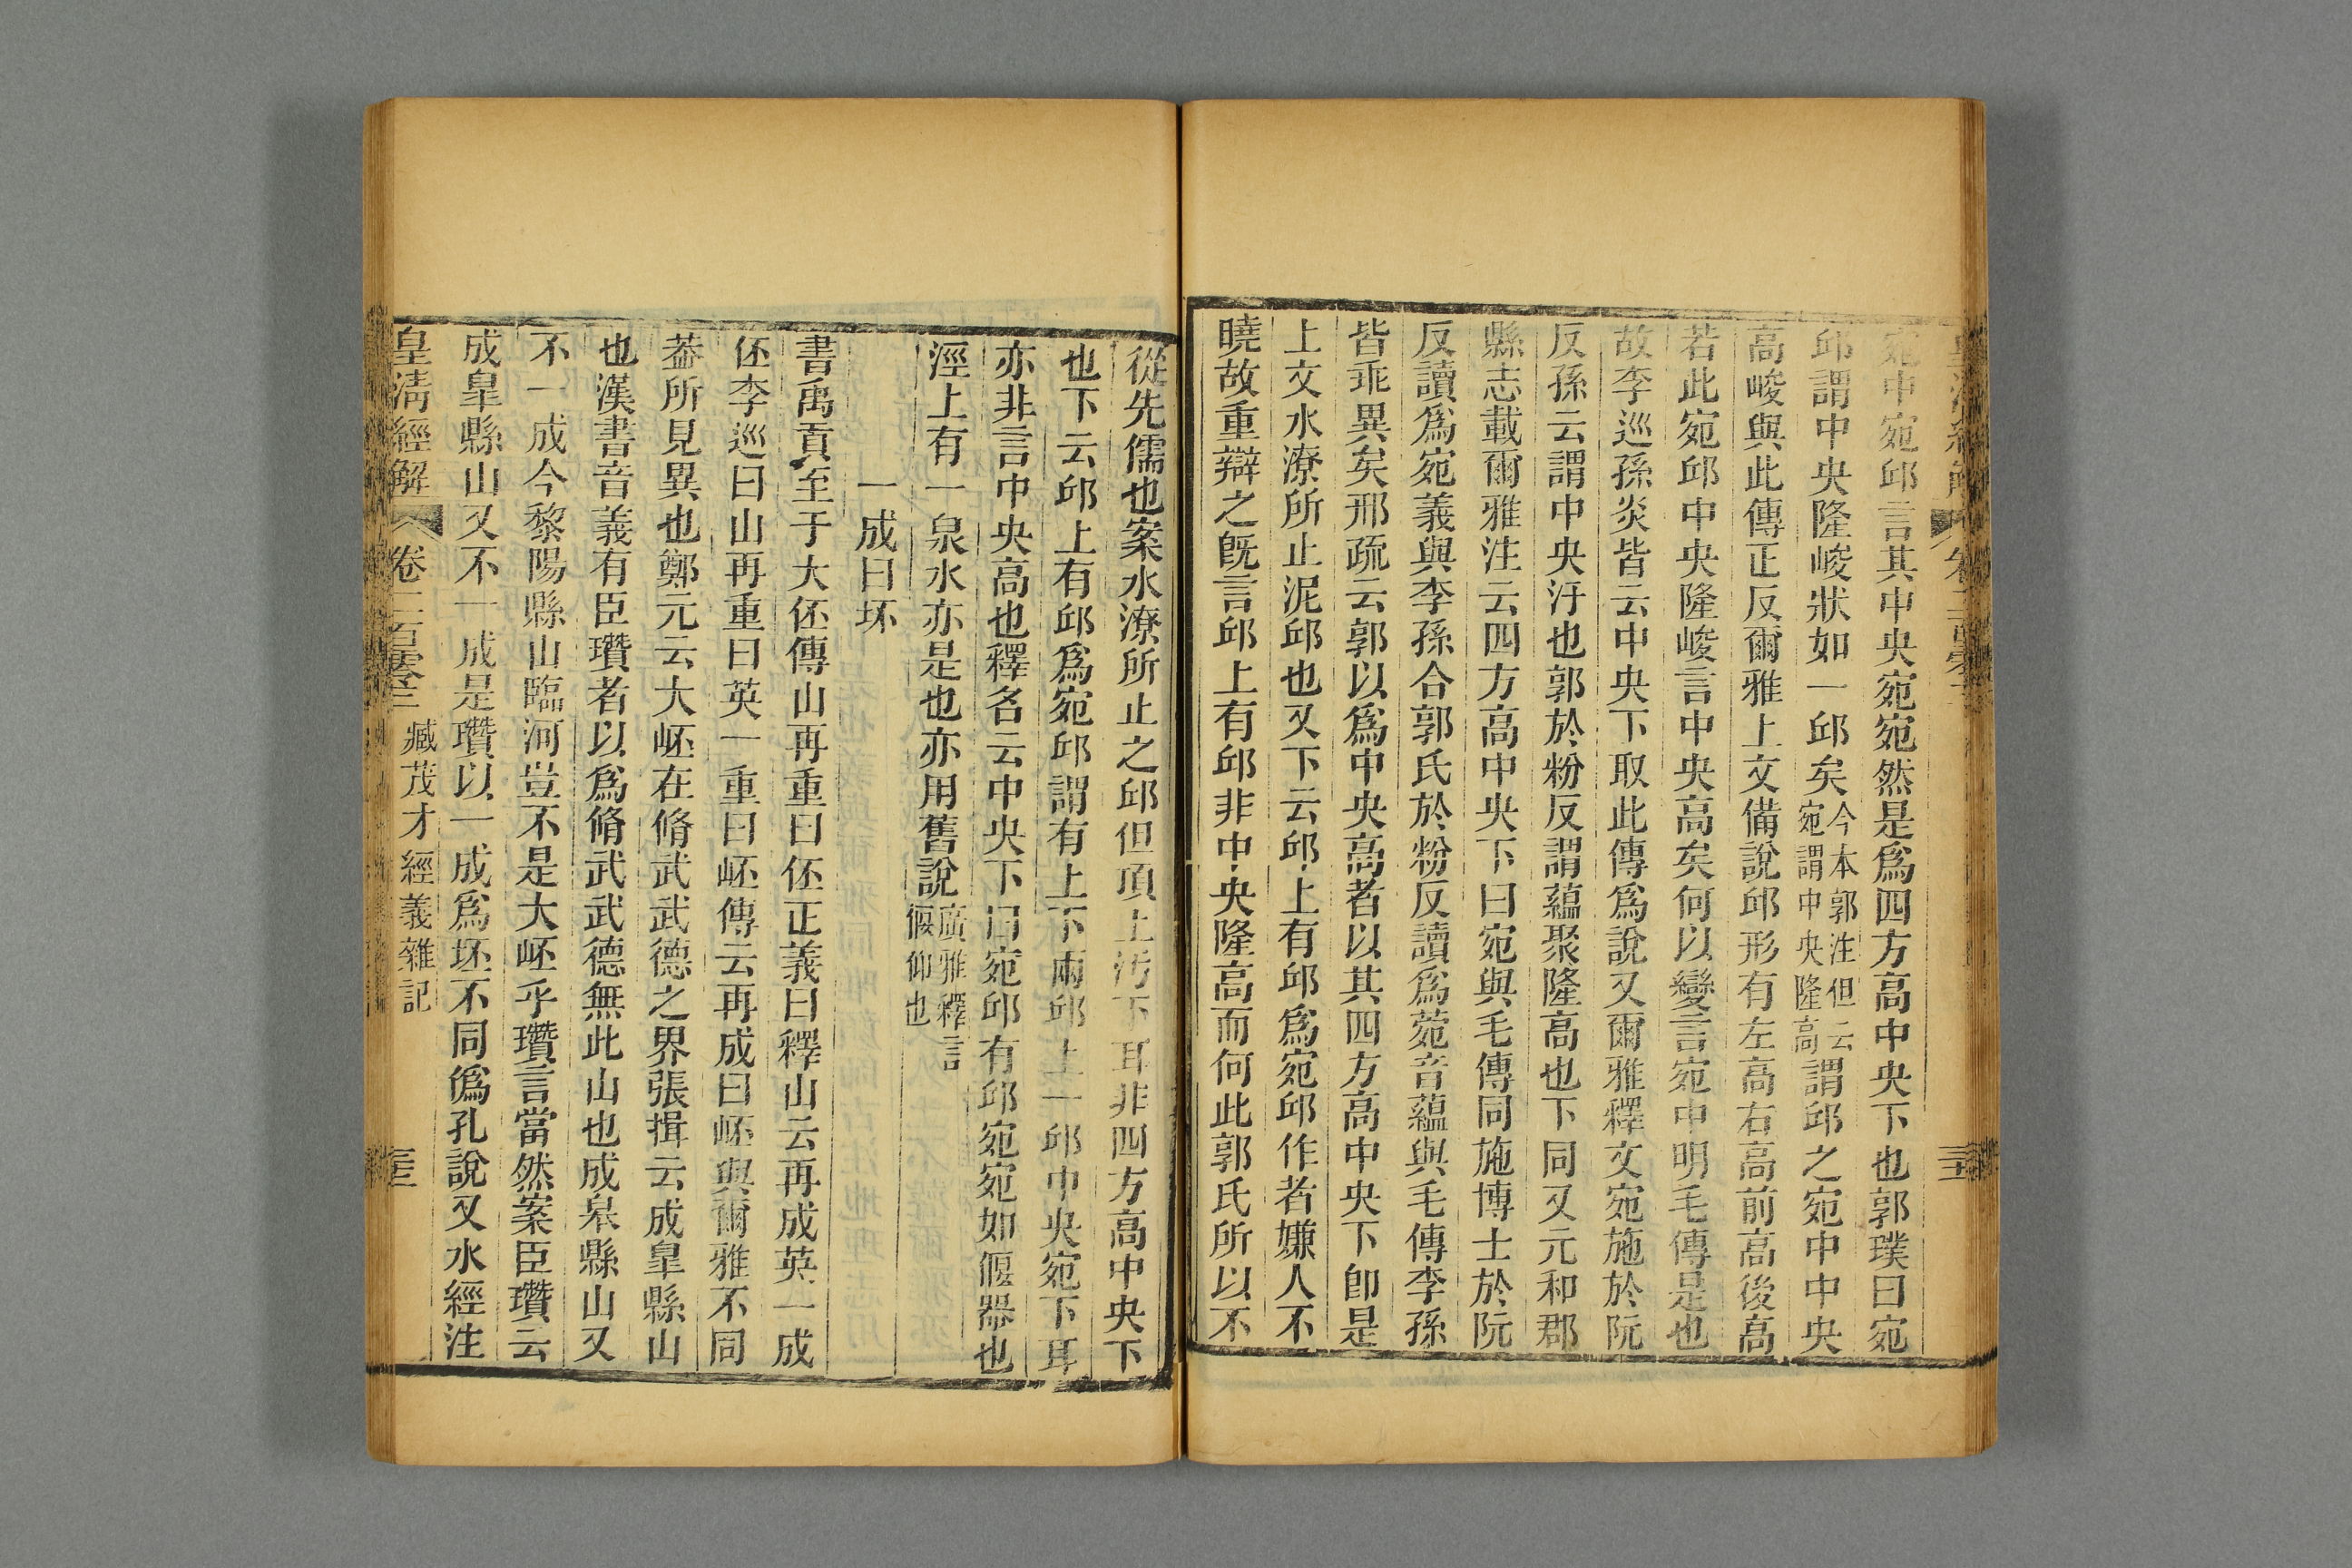 宛中宛邱言其中央宛宛然是爲四方高中央下也郭璞曰宛
邱謂中央隆峻狀如一邱矣今本郭注但云宛謂中央隆高謂邱之宛中中央
高峻與此傳正反爾雅上文備說邱形有左高右高前高後高
若此宛邱中央隆峻言中央高矣何以變言宛中明毛傳是也
故李巡孫炎皆云中央下取此傳爲說又爾雅釋文宛施於阮
反孫云謂中央汙也郭於粉反謂蘊聚隆高也下同又元和郡
縣志載爾雅注云四方高中央下曰宛與毛傳同施博士於阮
反讀爲宛義與李孫合郭氏於粉反讀爲菀音蘊與毛傳李孫
皆乖異矣邢疏云郭以爲中央高者以其四方高中央下卽是
上文水潦所止泥邱也又下云邱上有邱爲宛邱作者嫌人不
曉故重辯之旣言邱上有邱非中央隆高而何此郭氏所以不
從先儒也案水潦所止之邱但頂上汚下耳非四方高中央下
也下云邱上有邱爲宛邱謂有上下兩邱上一邱中央宛下耳
亦非言中央高也釋名云中央下曰宛邱有邱宛宛如偃器也
涇上有一泉水亦是也亦用舊說廣雅釋言偃仰也
一成曰坏
書禹貢至于大伾傳山再重曰伾正義曰釋山云再成英一成
伾李巡曰山再重曰英一重曰岯傳云再成曰岯與爾雅不同
葢所見異也鄭元云大岯在脩武武德之界張揖云成皐縣山
也漢書音義有臣瓚者以爲脩武武德無此山也成皋縣山又
不一成今黎陽縣山臨河豈不是大岯乎瓚言當然案臣瓚云
成皐縣山又不一成是瓚以一成爲坯不同僞孔說又水經注
皇清經解 卷二百零三 臧茂才經義雜記 三